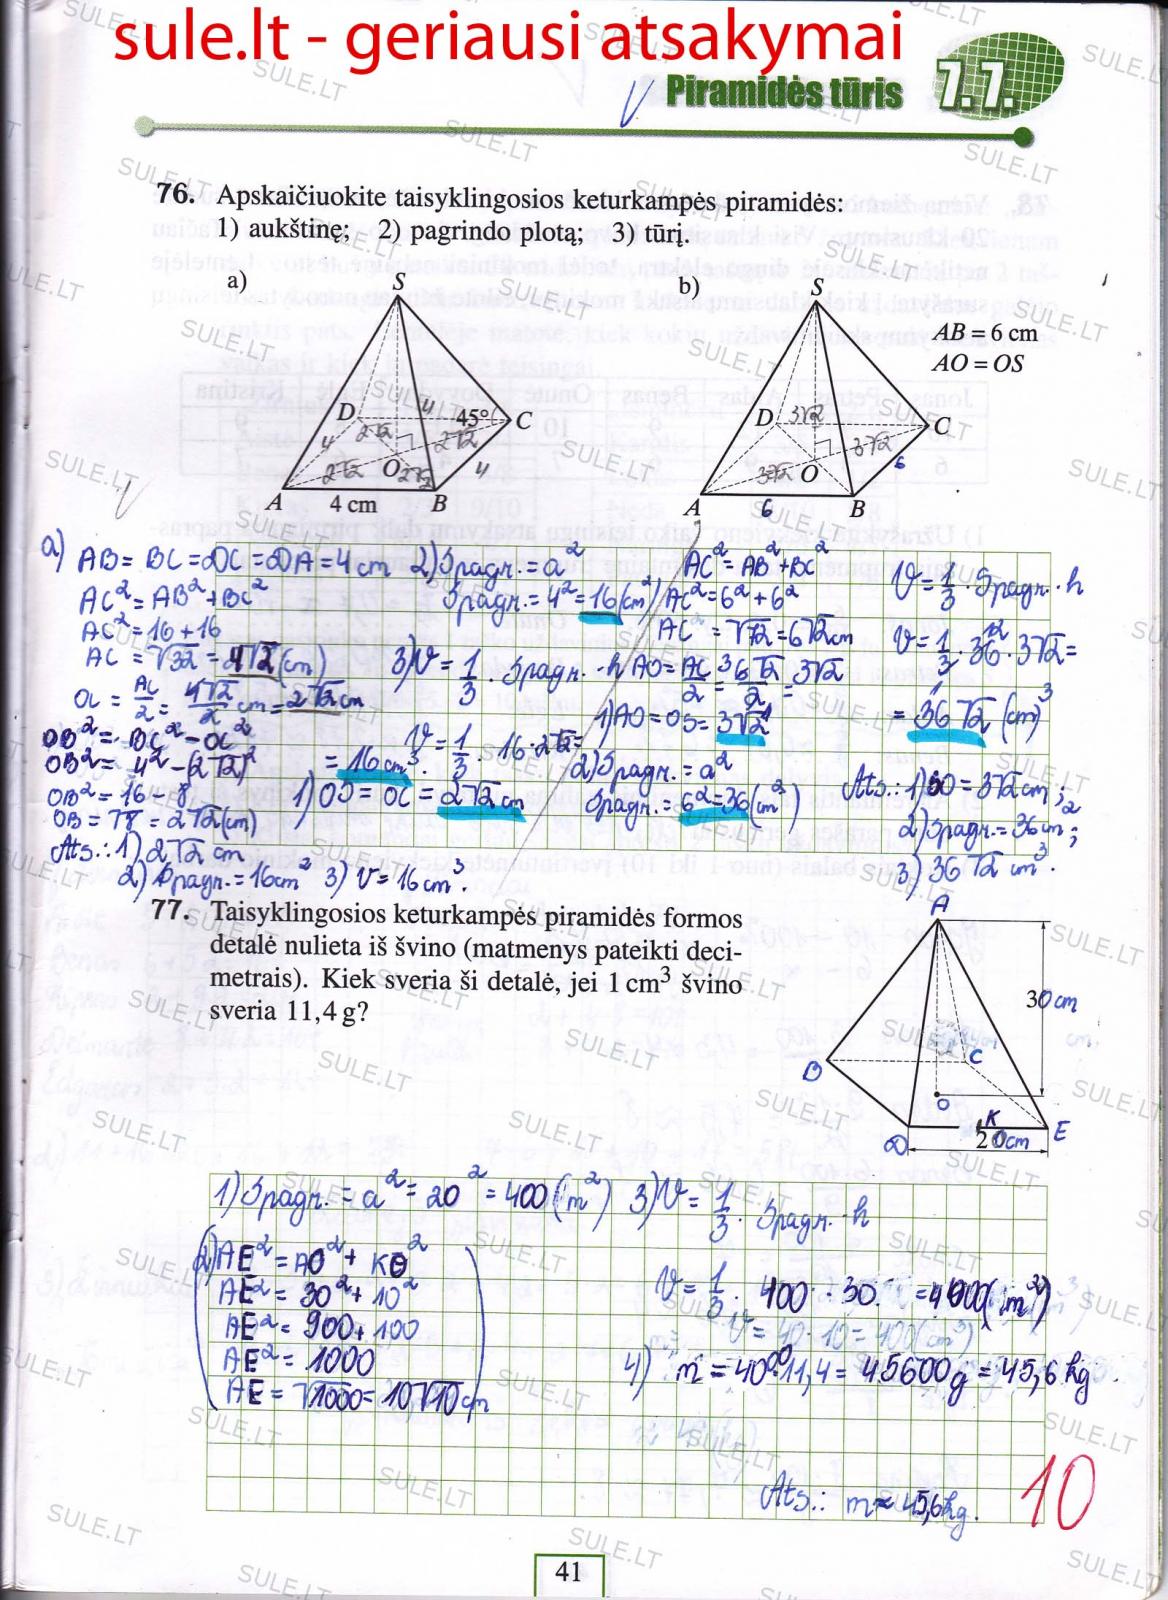 sule.lt - geriausi atsakymai
Piramidės tūris 7.7.
76. Apskaičiuokite taisyklingosios keturkampės piramidės:
1) aukštinę; 2) pagrindo plotą; 3) tūrį.
a)
S
D
4
45°
C
2√2
2√2
4
4
2√2
O
2√2
A
4 cm
B
b)
S
AB = 6 cm
AO = OS
D
3√2
C
3√2
6
3√2
O
A
6
B
a) AB = BC = DC = DA = 4 cm
AC² = AB² + BC²
AC² = 16 + 16
AC = √32 = 4√2 (cm)
OC = AC/2 = 4√2/2 cm = 2√2 cm
OB² = BC² - OC²
OB² = 4² - (2√2)²
OB² = 16 - 8
OB = √8 = 2√2 (cm)
Ats.: 1) 2√2 cm
2) Spagr. = 16 cm² 3) V = 16 cm³.
2) Spagr. = a²
Spagr. = 4² = 16 (cm²)
3) V = 1/3 · Spagr. · h
V = 1/3 · 16 · 2√2 =
= 16 cm³.
1) OS = OC = 2√2 cm
AC² = AB² + BC²
AC² = 6² + 6²
AC = √72 = 6√2 cm
AO = AC/2 = 6√2/2 = 3√2
1) AO = OS = 3√2
2) Spagr. = a²
Spagr. = 6² = 36 (cm²)
V = 1/3 · Spagr. · h
V = 1/3 · 36 · 3√2 =
= 36√2 (cm)³
Ats.: 1) SO = 3√2 cm;
2) Spagr. = 36 cm²;
3) 36√2 cm³.
77. Taisyklingosios keturkampės piramidės formos
detalė nulieta iš švino (matmenys pateikti deci-
metrais). Kiek sveria ši detalė, jei 1 cm³ švino
sveria 11,4 g?
A
30 cm
B
C
O
K
D
20 cm
E
1) Spagr. = a² = 20² = 400 (m²)
2) AE² = AO² + KO²
AE² = 30² + 10²
AE² = 900 + 100
AE² = 1000
AE = √1000 = 10√10 cm
3) V = 1/3 · Spagr. · h
V = 1/3 · 400 · 30 = 4000 (m³)
V = 40 · 10 = 400 (cm³)
4) m = 4000 · 11,4 = 45600 g = 45,6 kg.
Ats.: m ≈ 45,6 kg.
10
41
SULE.LT